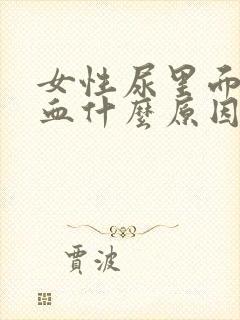 女性尿里而
血什麼原因
賈波